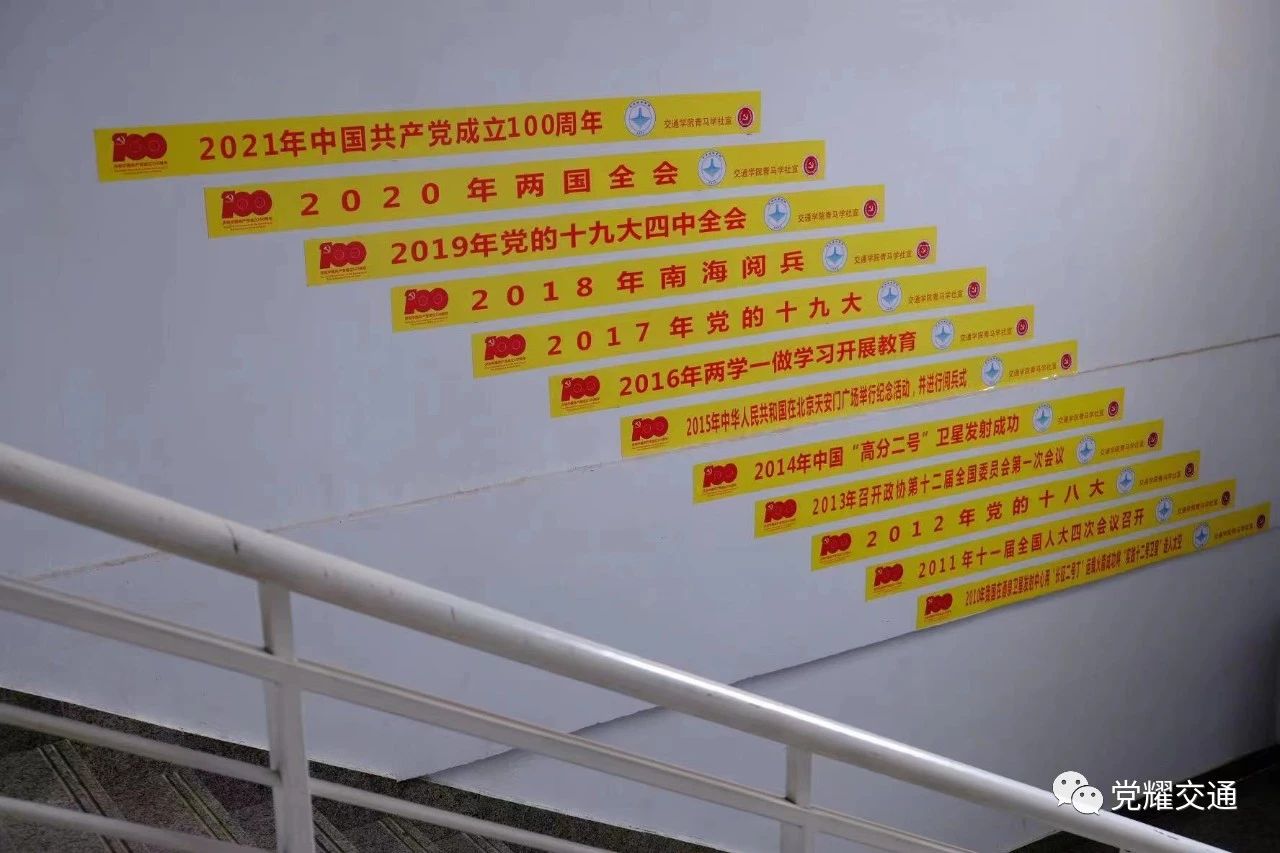 2021年中国共产党成立100周年 交通学院青马学社宣
2020年两国全会 交通学院青马学社宣
2019年党的十九大四中全会 交通学院青马学社宣
2018年南海阅兵 交通学院青马学社宣
2017年党的十九大 交通学院青马学社宣
2016年两学一做学习开展教育 交通学院青马学社宣
2015年中华人民共和国在北京天安门广场举行纪念活动，并进行阅兵式 交通学院青马学社宣
2014年中国“高分二号”卫星发射成功 交通学院青马学社宣
2013年召开政协第十二届全国委员会第一次会议 交通学院青马学社宣
2012年党的十八大 交通学院青马学社宣
2011年十一届全国人大四次会议召开 交通学院青马学社宣
2010年我国在酒泉卫星发射中心用“长征二号丁”运载火箭成功将“实践十二号卫星”送入太空 交通学院青马学社宣
党耀交通